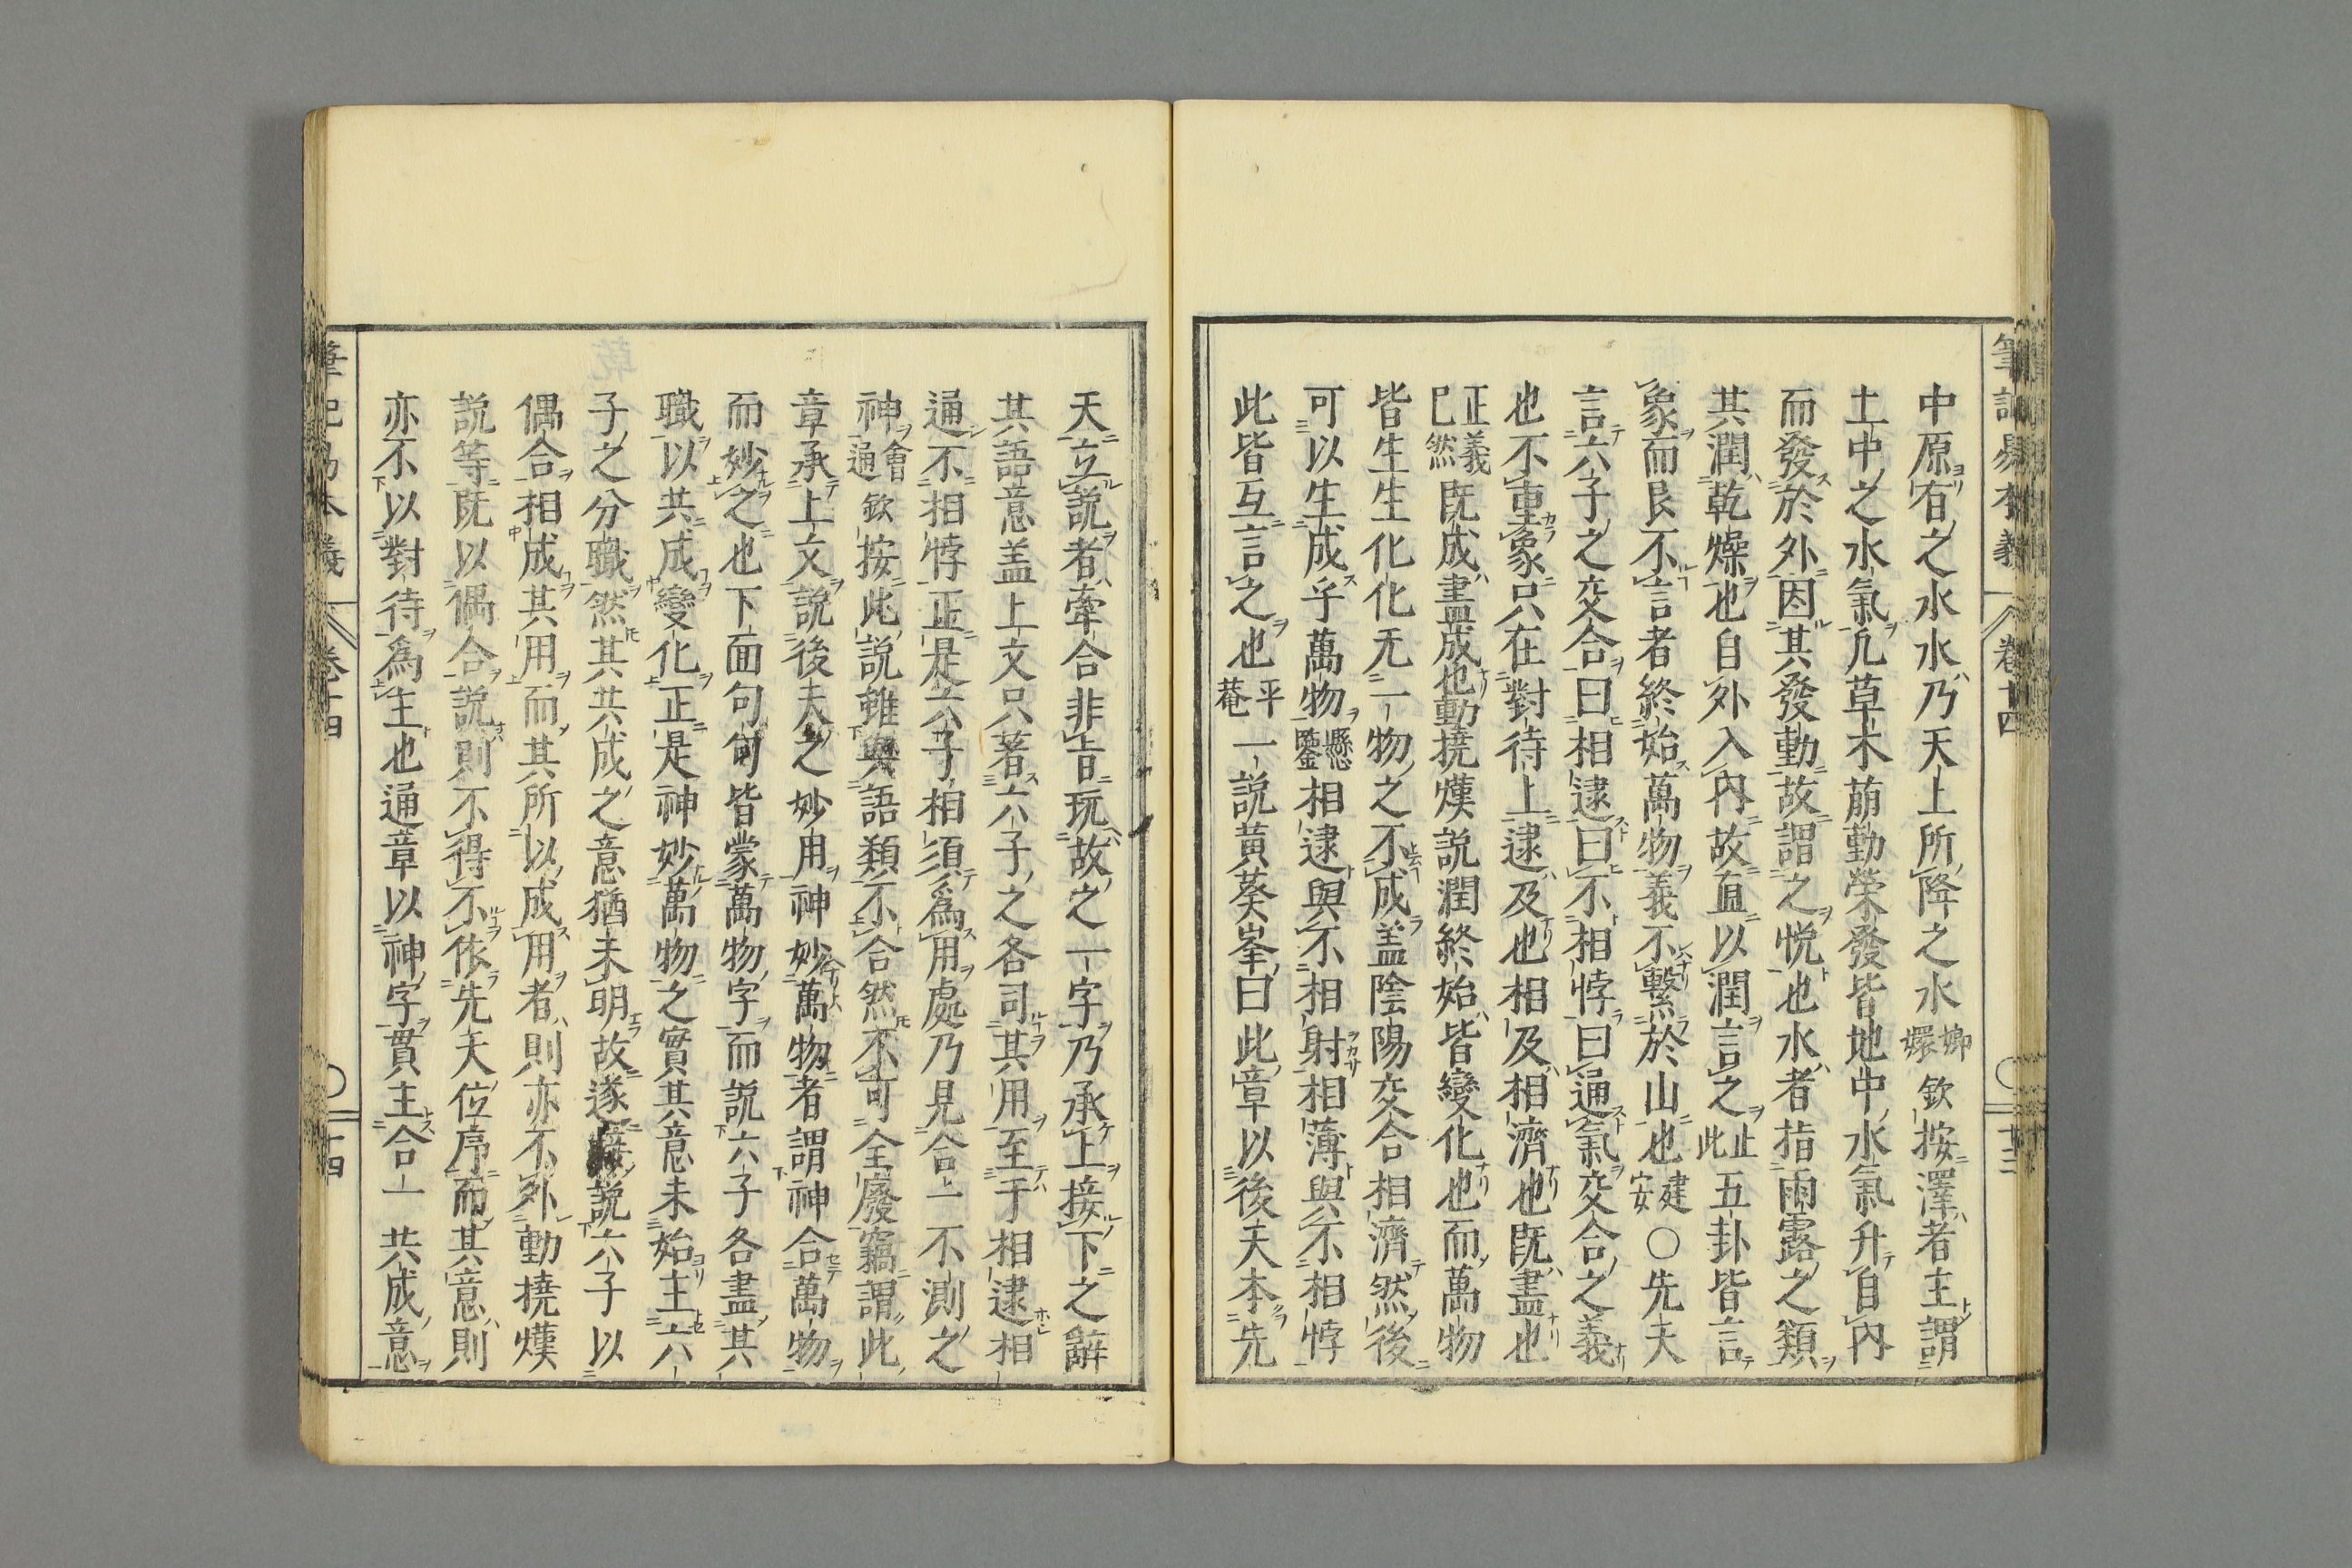 中原有之水水乃天上所降之水 嫏嬛 欽按澤者主謂
土中之水氣凢草木萠動榮發皆地中水氣升自內
而發於外因其發動故謂之悅也水者指雨露之類
其潤乾燥也自外入內故直以潤言之 止此 五卦皆言
象而艮不言者終始萬物義不繫於山也 建安 ○先天
言六子之交合曰相逮曰不相悖曰通氣交合之義
也不重象只在對待上逮及也相及相濟也既盡也
正義已然 既成盡成也動撓熯説潤終始皆變化也而萬物
皆生生化化无一物之不成盖陰陽交合相濟然後
可以生成乎萬物 懸鑒 相逮與不相射相薄與不相悖
此皆互言之也 平菴 一説黃葵峯曰此章以後天本先
天立説者牽合非㫖玩故之一字乃承上接下之辭
其語意盖上文只著六子之各司其用至于相逮相
通不相悖正是六子相須爲用處乃見合一不測之
神 會通 欽按此説雖與語類不合然不可全廢竊謂此
章承上文説後天之妙用神妙萬物者謂神合萬物
而妙之也下面句句皆蒙萬物字而説六子各盡其
職以共成變化正是神妙萬物之實其意未始主六
子之分職然其共成之意猶未明故遂接説六子以
偶合相成其用而其所以成用者則亦不外動撓熯
説等既以偶合説則不得不依先天位序而其意則
亦不以對待爲主也通章以神字貫主合一共成意
筆記易本義 卷十四 十三
筆記易本義 卷十四 十四